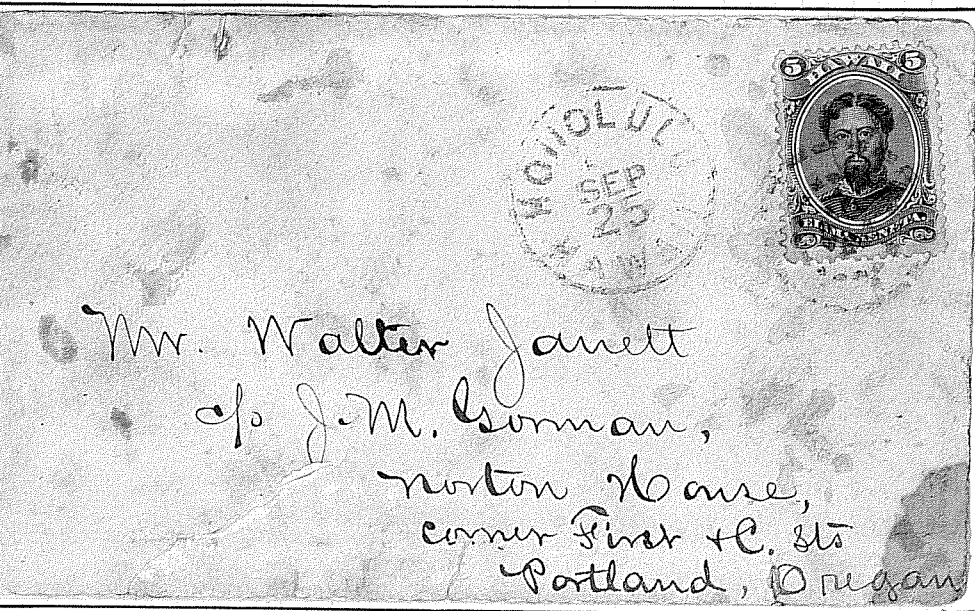 5 HAWAII 5
ELIMA KENETA
HONOLULU
SEP
25
HAWAII
Mr. Walter Jarrett
c/o J. M. Gorman,
Norton House,
corner First + C. Sts
Portland, Oregon